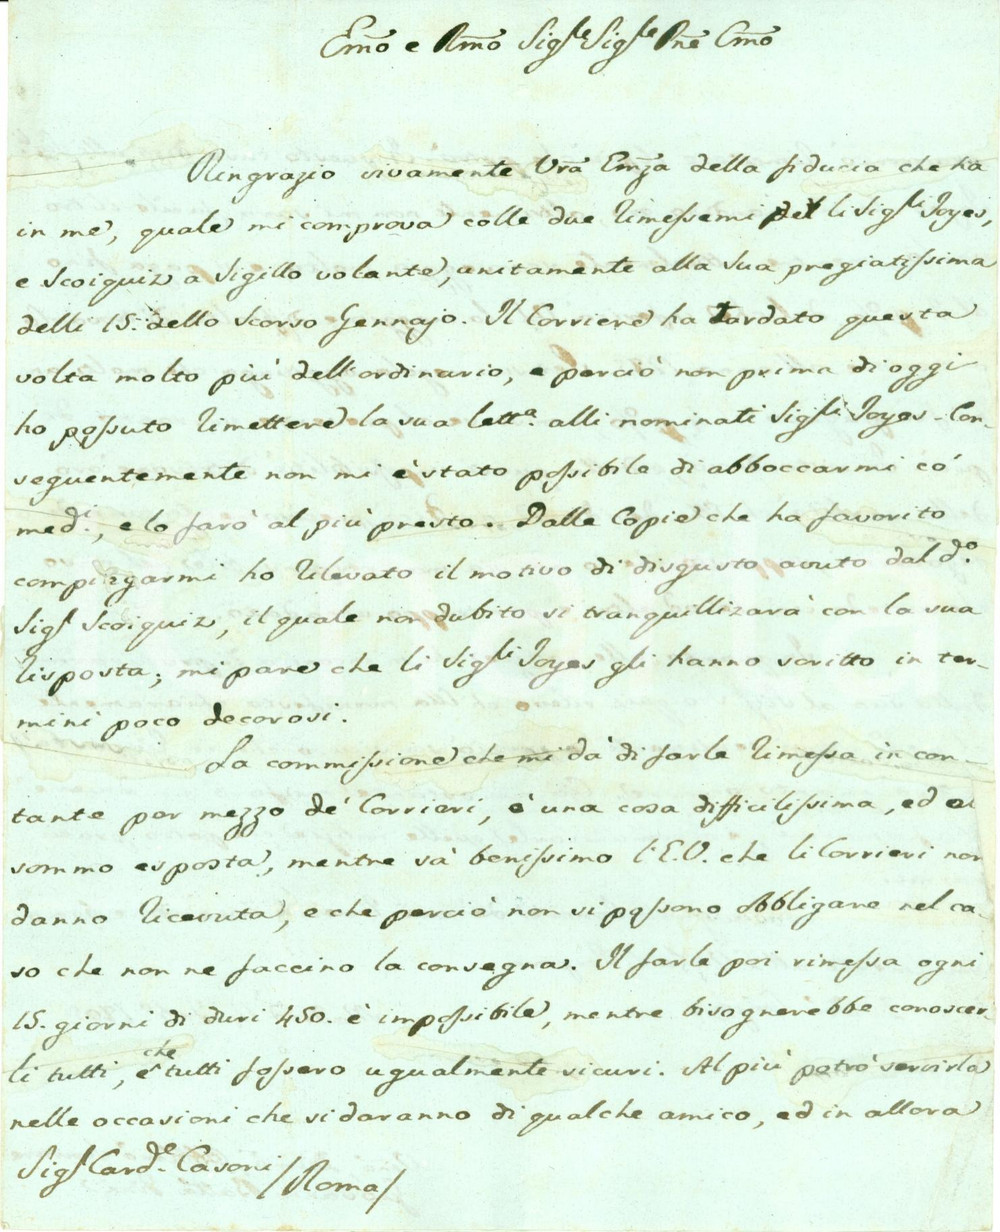 Emo e Rmo Sigre Sigre Pne Cmo
Ringrazio vivamente Vra Emza della fiducia che ha
in me, quale mi comprova colle due rimessemi pel li Sigri Joyes,
e Scoiquiz a Sigillo volante, unitamente alla Sua pregiatissima
delli 15. dello Scorso Gennajo. Il Corriere ha tardato questa
volta molto più dell'ordinario, e perciò non prima di oggi
ho possuto rimettere la sua letta. alli nominati Sigri Joyes. Con-
seguentemente non mi è stato possibile di abboccarmi co'
medi., e lo farò al più presto. Dalle Copie che ha favorito
compiegarmi ho rilevato il motivo di disgusto avuto dal do.
Sigr Scoiquiz, il quale non dubito si tranquillizarà con la sua
risposta; mi pare che li Sigri Joyes gli hanno scritto in ter-
mini poco decorosi.
La commissione che mi dà di farle rimessa in con-
tante per mezzo de' Corrieri, è una cosa difficilissima, ed al
sommo esposta, mentre sà benissimo l'E.V. che li Corrieri non
danno ricevuta, e che perciò non si possono obbligare nel ca-
so che non ne faccino la consegna. Il farle poi rimessa ogni
15. giorni di duri 450. è impossibile, mentre bisognerebbe conoscer-
li tutti, e che tutti fossero ugualmente sicuri. Al più potrò servirla
nelle occasioni che si daranno di qualche amico, ed in allora
Sigr Carde. Casoni /Roma/